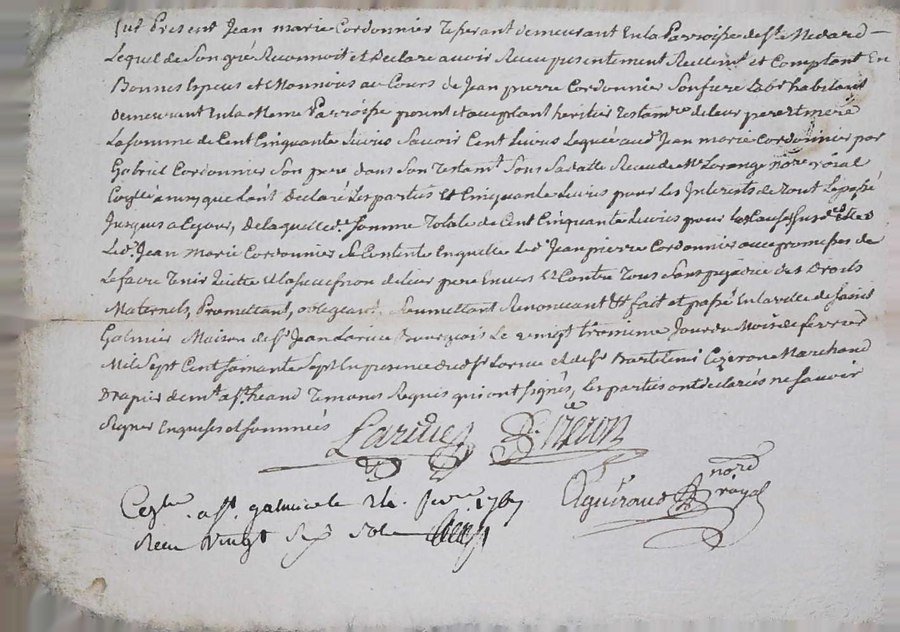 fut Present Jean marie Cordonnier Tisserant demeurant En la Parroisse de St Medard
Lequel de Son gré Reconnoit et Declare avoir Receu presentement Reellemt et Comptant En
Bonnes Especes et Monnoies au Cours de Jean pierre Cordonnier Son frere Labr habitant
demeurant En la Meme Parroisse present et acceptant heritier Testamre de leur pere et mere
La Somme de Cent Cinquante Livres Savoir Cent Livres Legués aud Jean marie Cordonnier par
Gabriel Cordonnier Son pere dans Son Testamt Sous Sa datte Receu de Me Lorange nore royal
ainsy que l'ont Declaré Les parties Et Cinquante Livres pour les Interets de tout Le passé
Jusques a Ce jour, De laquelle de Somme Totale de Cent Cinquante Livres pour les Causes Susd
Led. Jean Marie Cordonnier Se Contente En quitte led. Jean pierre Cordonnier avec promesses de
Le faire Tenir quitte Et la Succession de leur pere Envers Et Contre Tous Sans prejudice des Droits
Maternels, Promettant, obligeant, Soumettant Renonceant &t fait et passé En la ville de Saint
Galmier Maison de Sr Jean Larive Bourgeois Le vingt troisieme Jour du Mois de fevrier
Mil Sept Cent Soixante Sept En presence dud Sr Larive et de Sr Bartelemi Marchand
Drapier demt a St heand Temoins Requis qui ont Signés, les parties ont declarés ne Savoir
Signer Enquises et Sommées
Larive
nore
royal
a St galmier le 24 fevr 1767
Receu vingt Six Sols